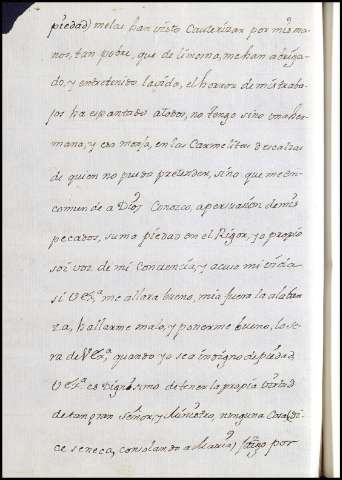 piedad) melas han visto Cauterizar por mis ma
nos, tan pobre, que de limosna, me han abriga
do, y entretenido la vida, el horror de mis traba
jos ha espantado a todos, no tengo sino una her
mana, y esa monja, en las Carmelitas descalzas
de quien no puedo pretender, sino que me en
comiende a Dios Conozco, a persuasión de mis
pecados, suma piedad en el Rigor, yo propio
soi voz de mi Conciencia, y acuso mi vida
si VEx.ª me allara bueno, mia fuera la alaban
za, hallarme malo, y ponerme bueno, lo se
ra de VEx.ª, quando yo sea indigno de piedad
VEx.ª es Dignissimo de tener la propia virtud
de tan gran señor, y Ministro, ninguna Cosa (di
ce seneca, consolando a Marcia) juzgo por